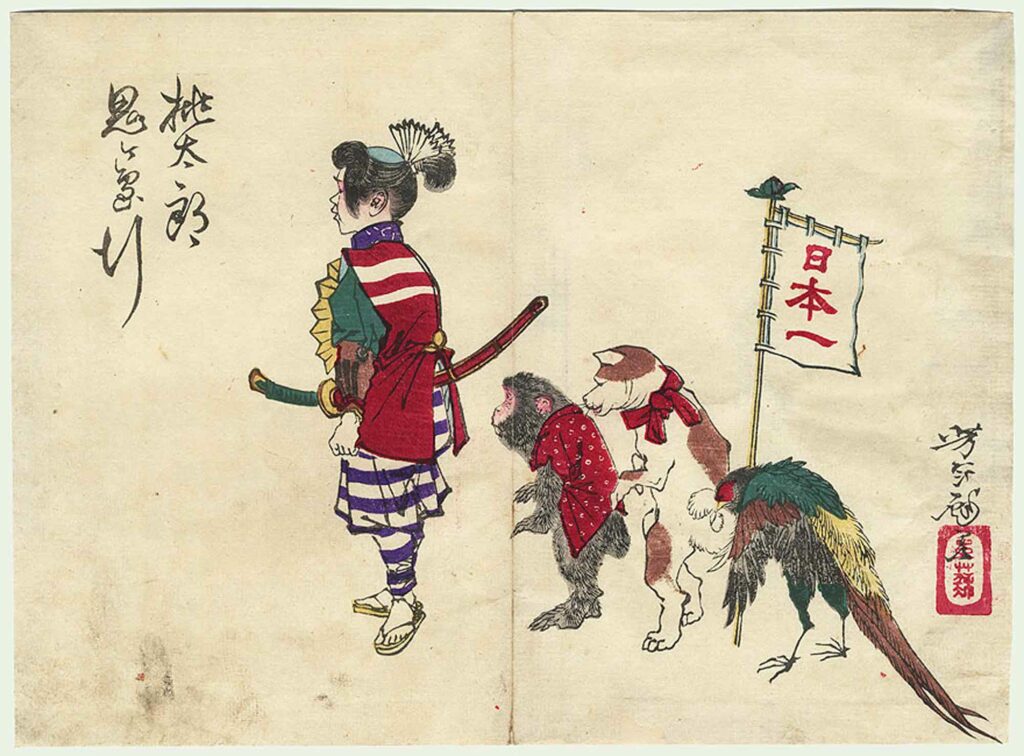 桃太郎
鬼ヶ島行
日本一
芳年